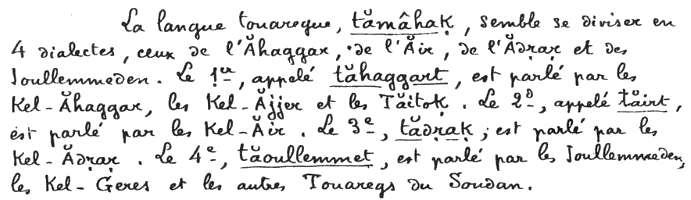 La langue touaregue, tămâhaḳ, semble se diviser en
4 dialectes, ceux de l'Ăhaggar, de l'Ăir, de l'Ădṛaṛ et des
Ioullemmeden. Le 1er, appelé tăhaggart, est parlé par les
Kel-Ăhaggar, les Kel-Ăjjer et les Tăitoḳ. Le 2d, appelé tăirt,
est parlé par les Kel-Ăir. Le 3e, tădṛaḳ, est parlé par les
Kel-Ădṛaṛ. Le 4e, tăoullemmet, est parlé par les Ioullemmeden,
les Kel-Ġeres et les autres Touaregs du Soudan.